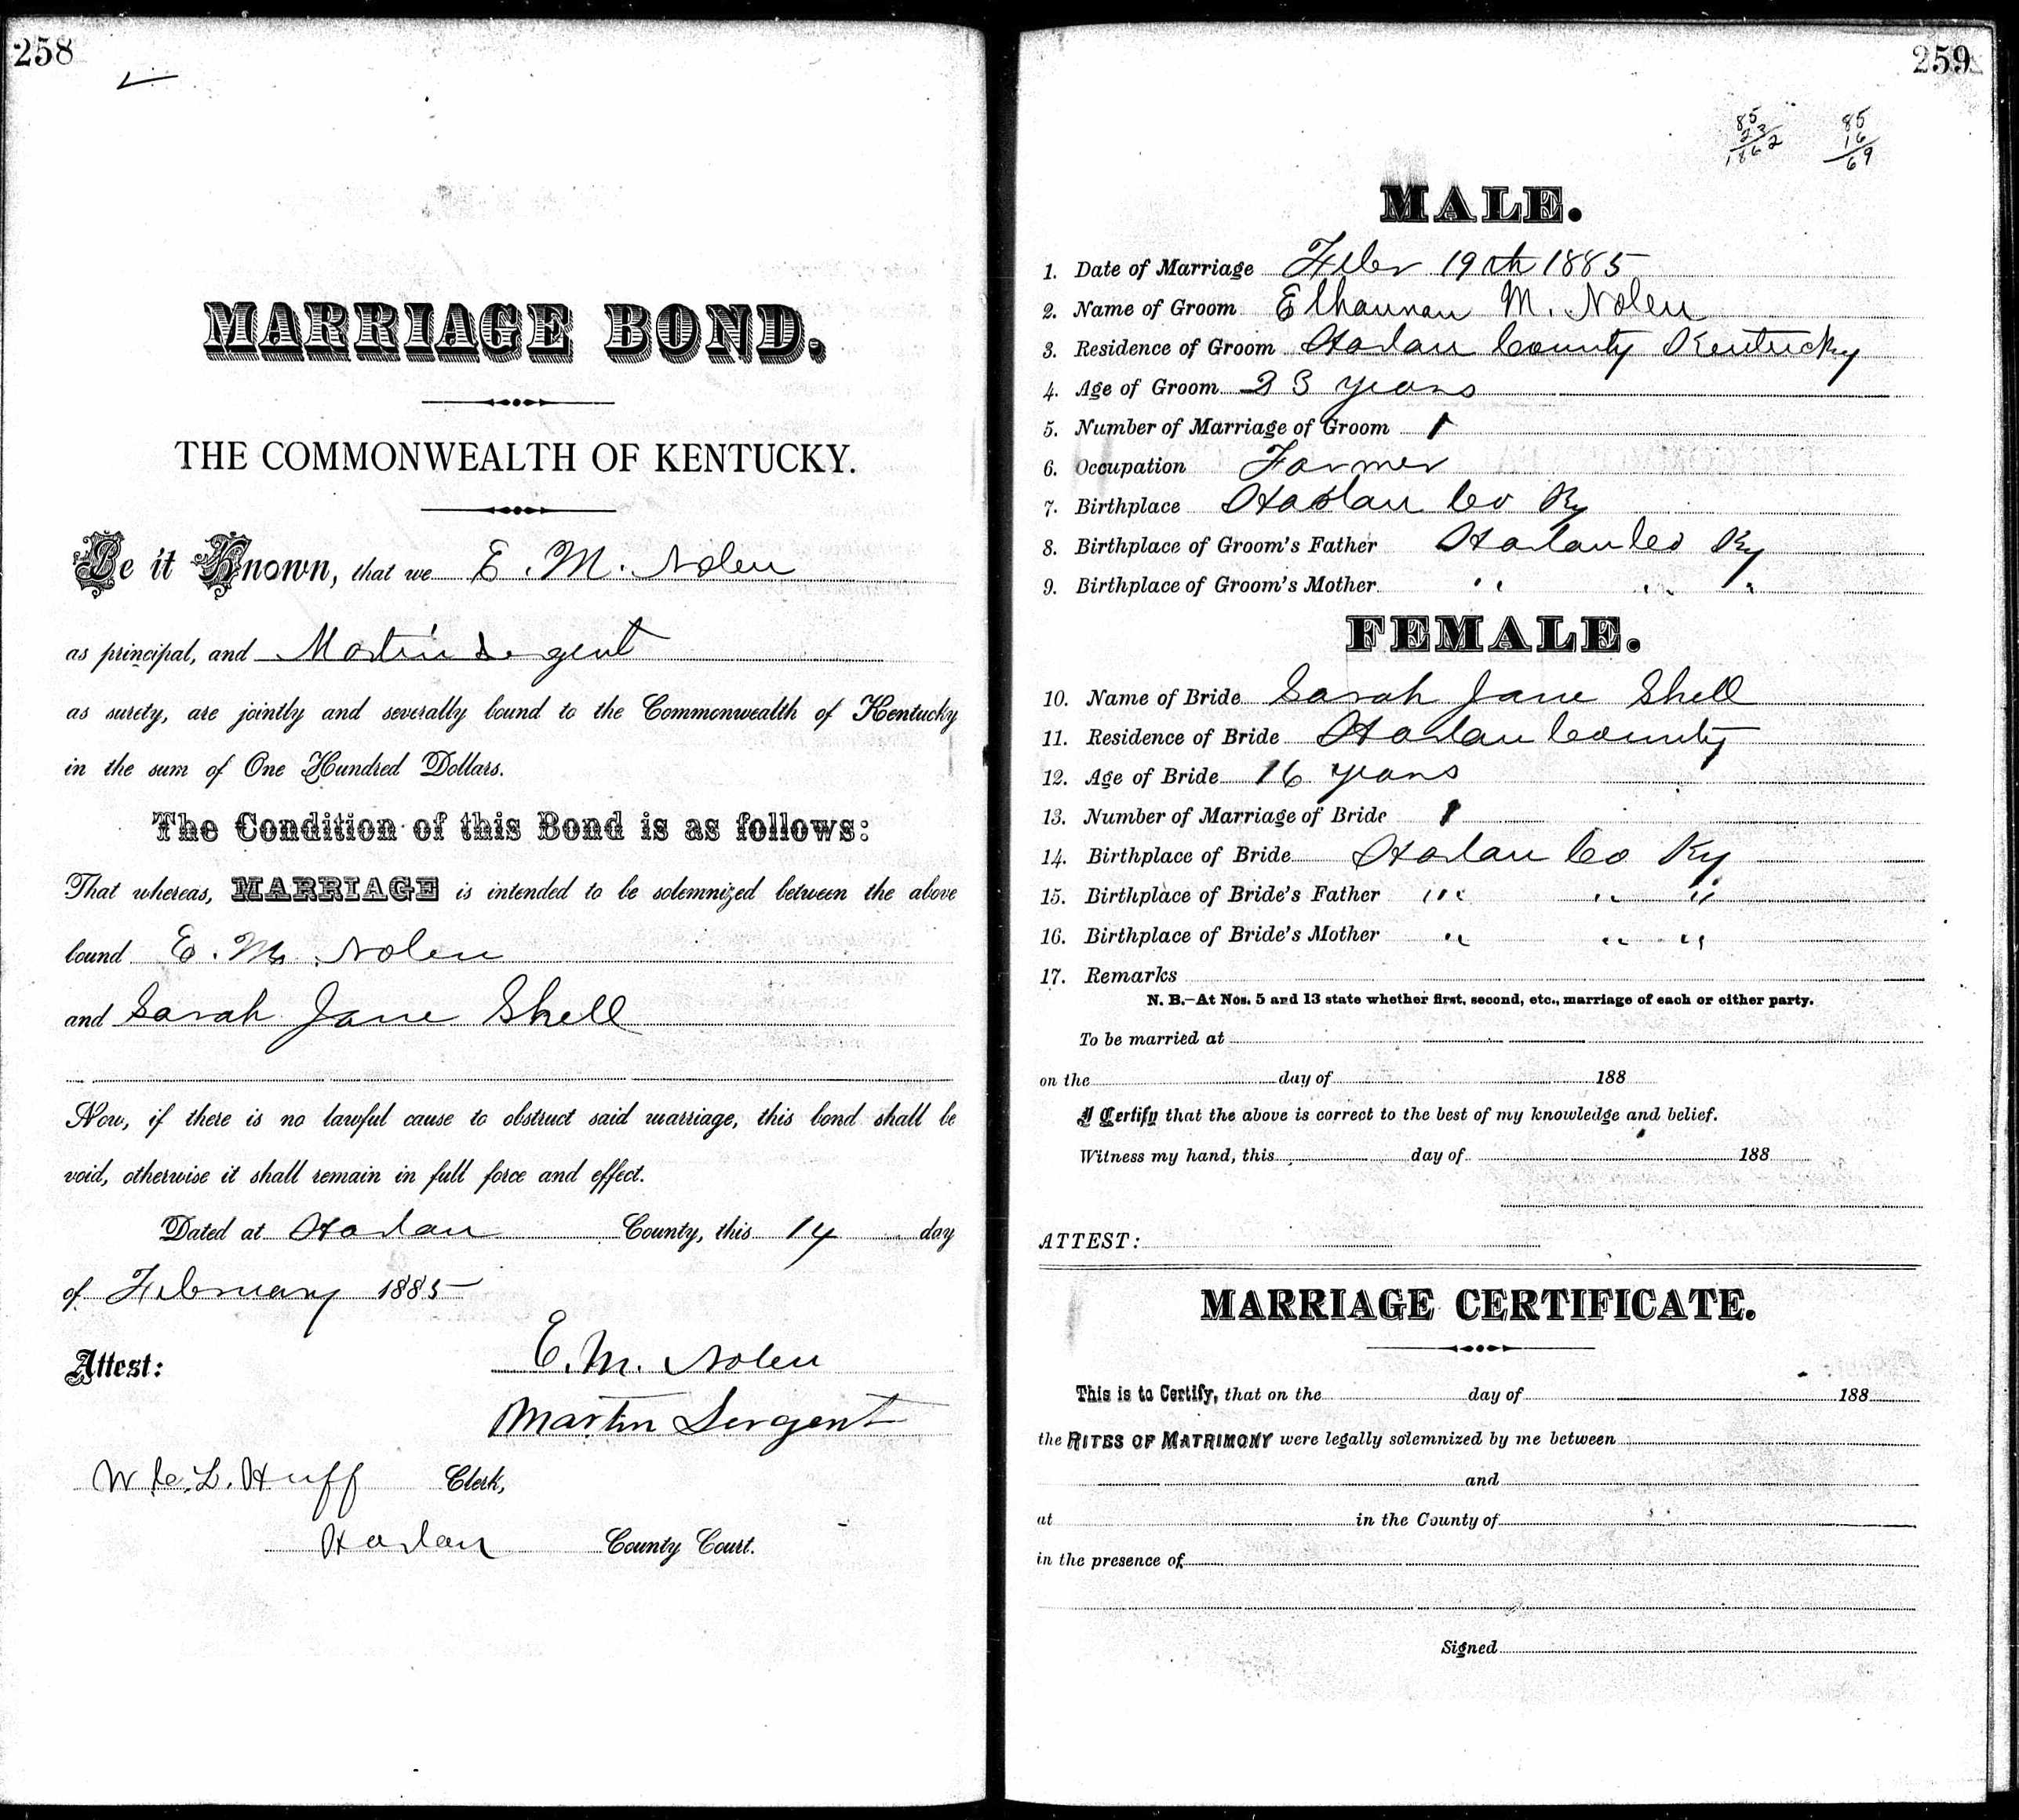 258
MARRIAGE BOND.
THE COMMONWEALTH OF KENTUCKY.
Be it Known, that we E. M. Nolen
as principal, and Martin Sergent
as surety, are jointly and severally bound to the Commonwealth of Kentucky
in the sum of One Hundred Dollars.
The Condition of this Bond is as follows:
That whereas, MARRIAGE is intended to be solemnized between the above
bound E. M. Nolen
and Sarah Jane Shell
Now, if there is no lawful cause to obstruct said marriage, this bond shall be
void, otherwise it shall remain in full force and effect.
Dated at Harlan County, this 14 day
of February 1885
Attest: E. M. Nolen
Martin Sergent
W. L. Huff Clerk,
Harlan County Court.
259
85 85
23 16
1862 69
MALE.
1. Date of Marriage Feber 19th 1885
2. Name of Groom Elhannan M. Nolen
3. Residence of Groom Harlan County Kentucky
4. Age of Groom 23 years
5. Number of Marriage of Groom 1
6. Occupation Farmer
7. Birthplace Harlan Co Ky
8. Birthplace of Groom's Father Harlan Co Ky
9. Birthplace of Groom's Mother " " "
FEMALE.
10. Name of Bride Sarah Jane Shell
11. Residence of Bride Harlan County
12. Age of Bride 16 years
13. Number of Marriage of Bride 1
14. Birthplace of Bride Harlan Co Ky
15. Birthplace of Bride's Father " " "
16. Birthplace of Bride's Mother " " "
17. Remarks
N. B.—At Nos. 5 and 13 state whether first, second, etc., marriage of each or either party.
To be married at
on the day of 188
I Certify that the above is correct to the best of my knowledge and belief.
Witness my hand, this day of 188
ATTEST:
MARRIAGE CERTIFICATE.
This is to Certify, that on the day of 188
the RITES OF MATRIMONY were legally solemnized by me between
and
at in the County of
in the presence of
Signed